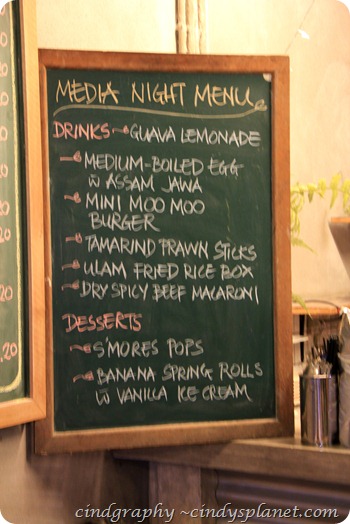 MEDIA NIGHT MENU
DRINKS GUAVA LEMONADE
MEDIUM-BOILED EGG
W ASSAM JAWA
MINI MOO MOO
BURGER
TAMARIND PRAWN STICKS
ULAM FRIED RICE BOX
DRY SPICY BEEF MACARONI
DESSERTS
S'MORES POPS
BANANA SPRING ROLLS
W VANILLA ICE CREAM
cindgraphy ~cindysplanet.com